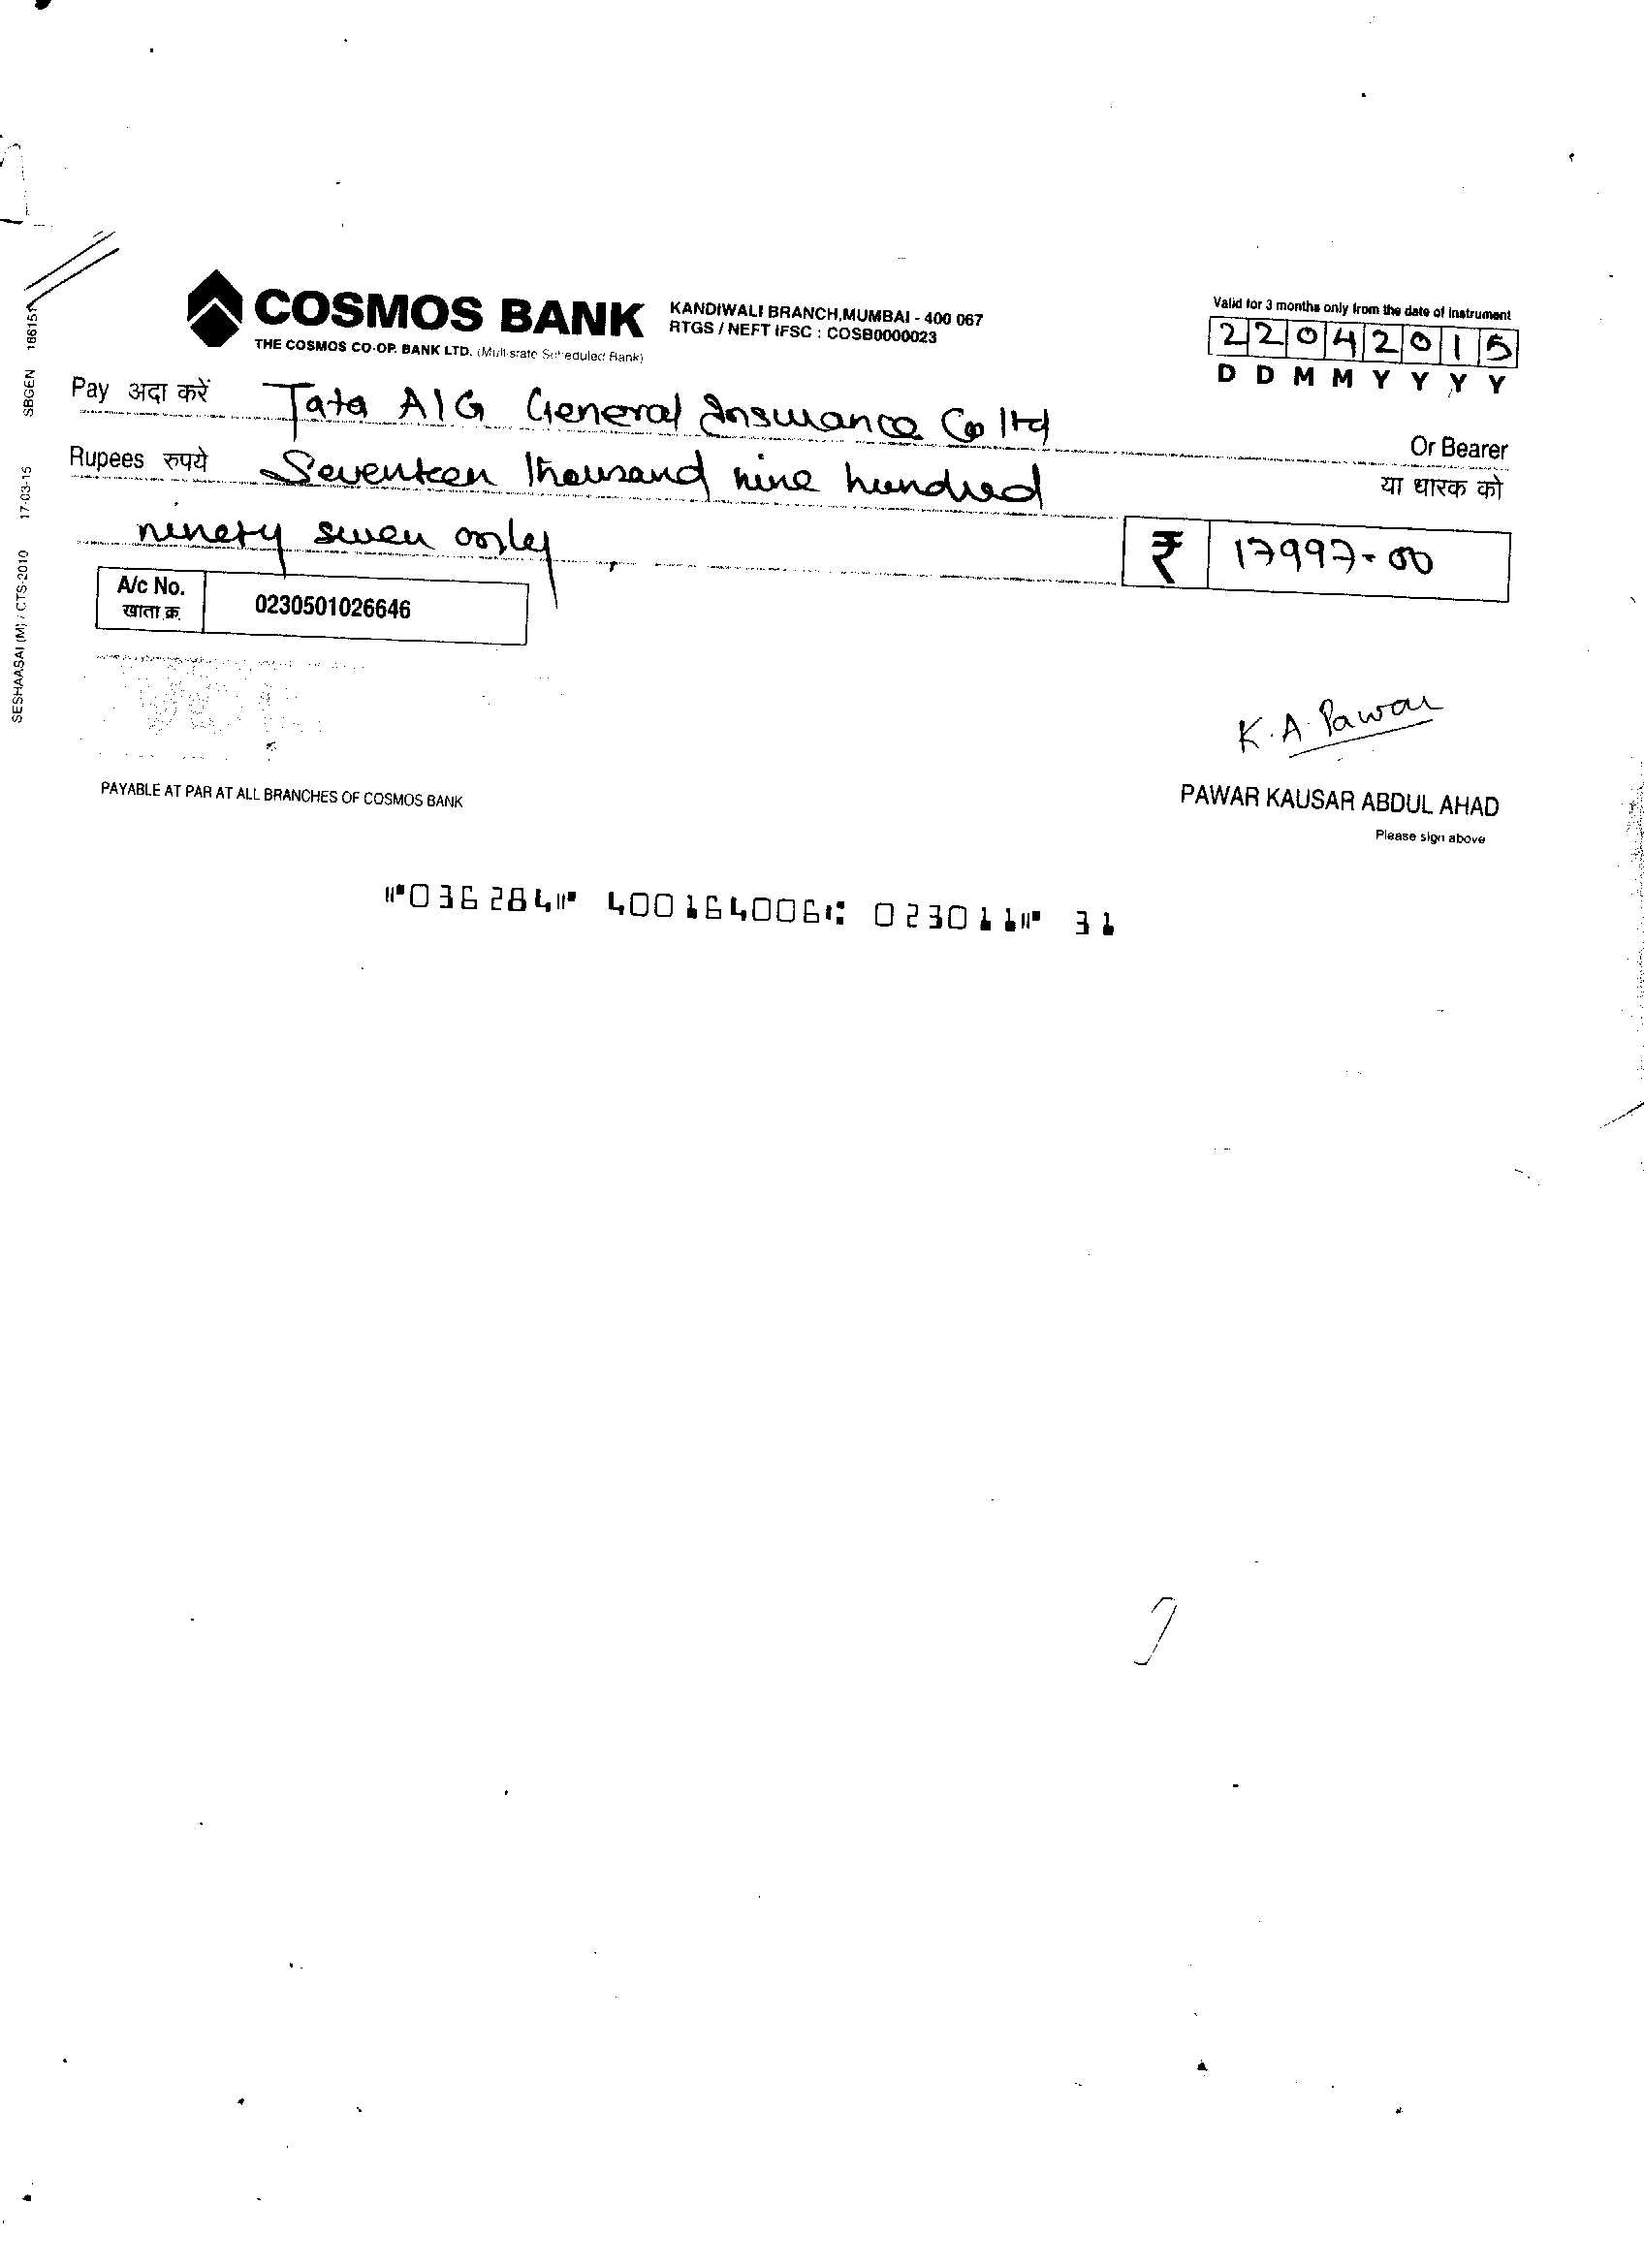 COSMOS BANK
THE COSMOS CO-OP. BANK LTD. (Multistate Scheduled Bank)
KANDIWALI BRANCH,MUMBAI - 400 067
RTGS / NEFT IFSC : COSB0000023
Valid for 3 months only from the date of instrument
22042015
D D M M Y Y Y Y
Pay अदा करें Tata AIG General Insurance Co ltd
Or Bearer
या धारक को
Rupees रुपये Seventeen thousand nine hundred
ninety seven only
₹ 17997-00
A/c No.
खाता क्र.
0230501026646
K.A. Pawar
PAYABLE AT PAR AT ALL BRANCHES OF COSMOS BANK
PAWAR KAUSAR ABDUL AHAD
Please sign above
⑈036284⑈ 400164006⑆ 023011⑈ 31
SESHAASAI (M) / CTS-2010 17-03-15 SBGEN